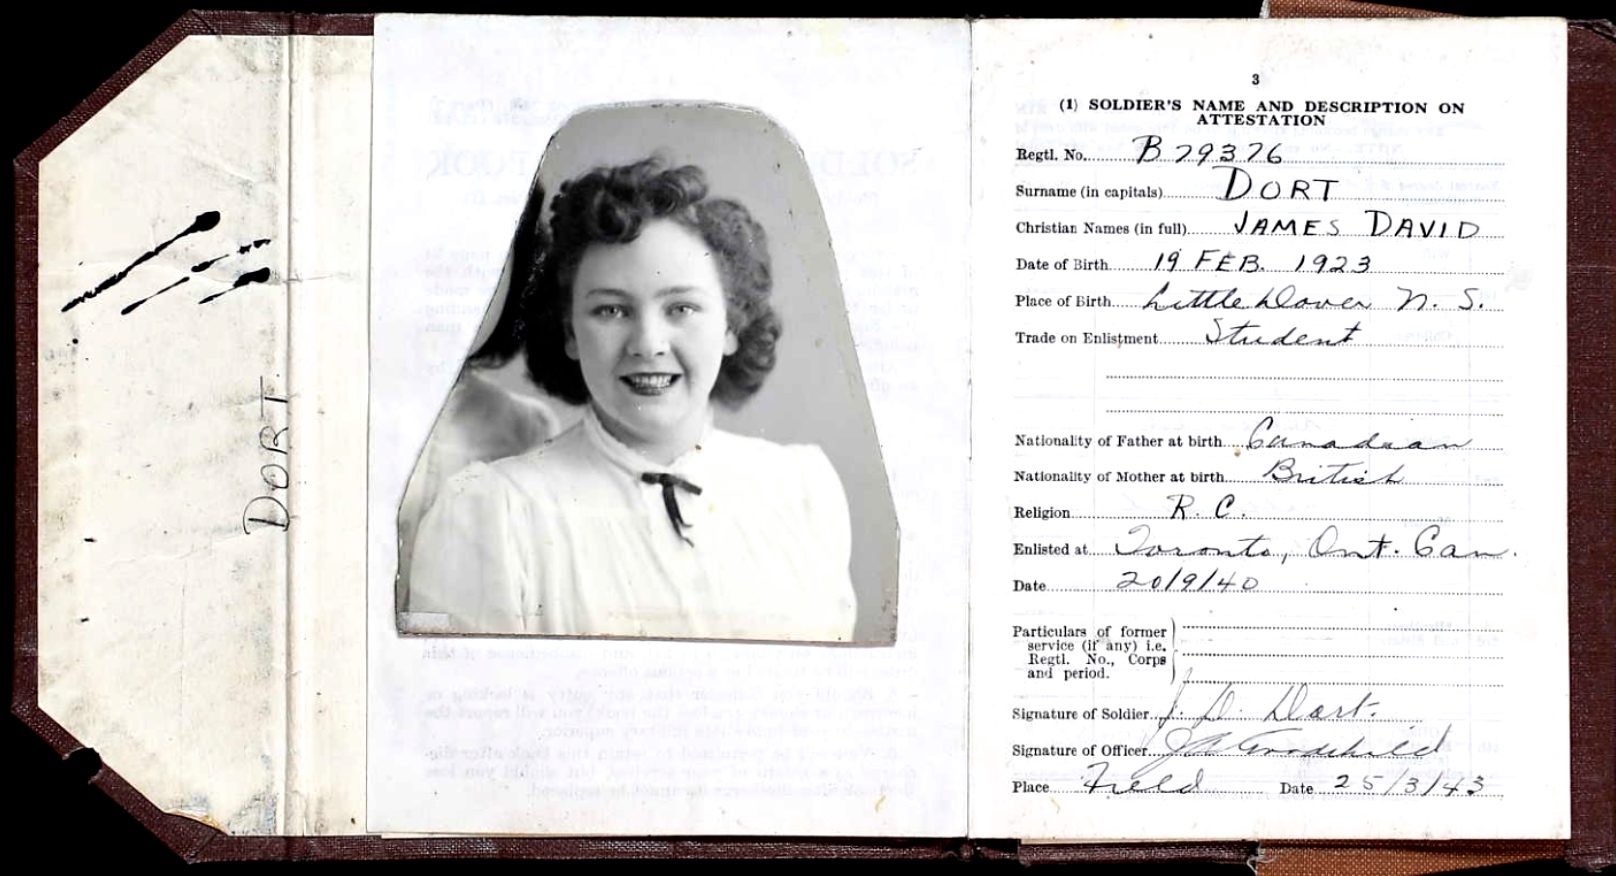 DORT
3
(1) SOLDIER'S NAME AND DESCRIPTION ON
ATTESTATION
Regtl. No. B79376
Surname (in capitals) DORT
Christian Names (in full) JAMES DAVID
Date of Birth 19 FEB. 1923
Place of Birth Little Dover N. S.
Trade on Enlistment Student
Nationality of Father at birth Canadian
Nationality of Mother at birth British
Religion R. C.
Enlisted at Toronto, Ont. Can.
Date 20/9/40
Particulars of former
service (if any) i.e.
Regtl. No., Corps
and period.
Signature of Soldier J. D. Dort.
Signature of Officer
Place Field Date 25/3/43